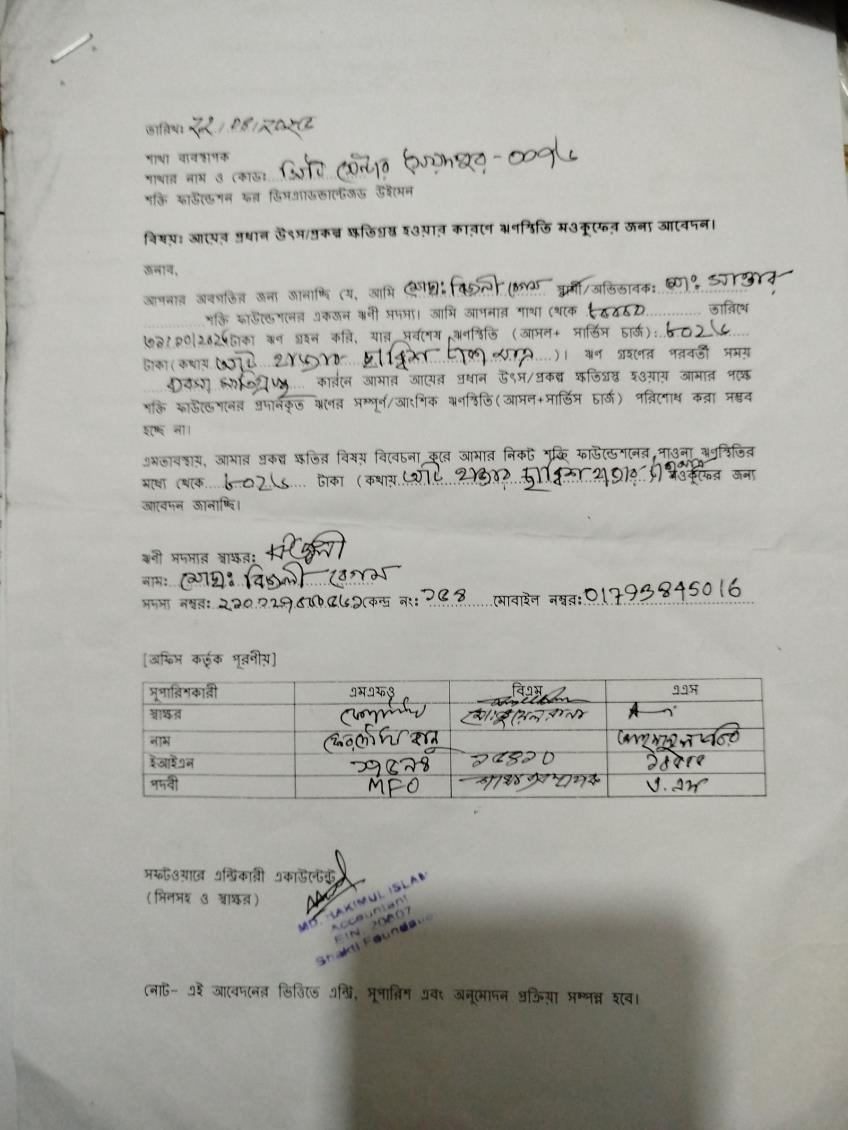 তারিখঃ
শাখা ব্যবস্থাপক
শাখার নাম ও কোডঃ
শক্তি ফাউন্ডেশন ফর ডিসএ্যাডভান্টেজড উইমেন
বিষয়ঃ আয়ের প্রধান উৎস/প্রকল্প ক্ষতিগ্রস্ত হওয়ার কারণে ঋণস্থিতি মওকুফের জন্য আবেদন।
জনাব,
আপনার অবগতির জন্য জানাচ্ছি যে, আমি মোছাঃ বিজলী বেগম স্বামী/অভিভাবক: মোঃ
শক্তি ফাউন্ডেশনের একজন ঋণী সদস্য। আমি আপনার শাখা থেকে তারিখে
টাকা ঋণ গ্রহন করি, যার সর্বশেষ ঋণস্থিতি (আসল+ সার্ভিস চার্জ): ৮০২৬
টাকা (কথায় আট হাজার ছাব্বিশ টাকা মাত্র)। ঋণ গ্রহণের পরবর্তী সময়
কারনে আমার আয়ের প্রধান উৎস/প্রকল্প ক্ষতিগ্রস্ত হওয়ায় আমার পক্ষে
শক্তি ফাউন্ডেশনের প্রদানকৃত ঋণের সম্পূর্ণ/আংশিক ঋণস্থিতি(আসল+সার্ভিস চার্জ) পরিশোধ করা সম্ভব
হচ্ছে না।
এমতাবস্থায়, আমার প্রকল্প ক্ষতির বিষয় বিবেচনা করে আমার নিকট শক্তি ফাউন্ডেশনের পাওনা ঋণস্থিতির
মধ্যে থেকে ৮০২৬ টাকা (কথায় আট হাজার ছাব্বিশ মওকুফের জন্য
আবেদন জানাচ্ছি।
ঋণী সদস্যর স্বাক্ষর: বিজলী
নাম: মোছাঃ বিজলী বেগম
সদস্য নম্বর: কেন্দ্র নং: ১৫৪ মোবাইল নম্বর: 01793845016
[অফিস কর্তৃক পূরণীয়]
সুপারিশকারী এমএফও বিএম এএম
স্বাক্ষর
নাম
ইআইএন ১৫৪১০
পদবী MFO শাখা ব্যবস্থাপক এ.এম
সফটওয়ারে এন্ট্রিকারী একাউন্টেন্ট
(সিলসহ ও স্বাক্ষর)
MD. HAKIMUL ISLAM
Accountant
EIN: 20807
Shakti Foundatio
নোট- এই আবেদনের ভিত্তিতে এন্ট্রি, সুপারিশ এবং অনুমোদন প্রক্রিয়া সম্পন্ন হবে।